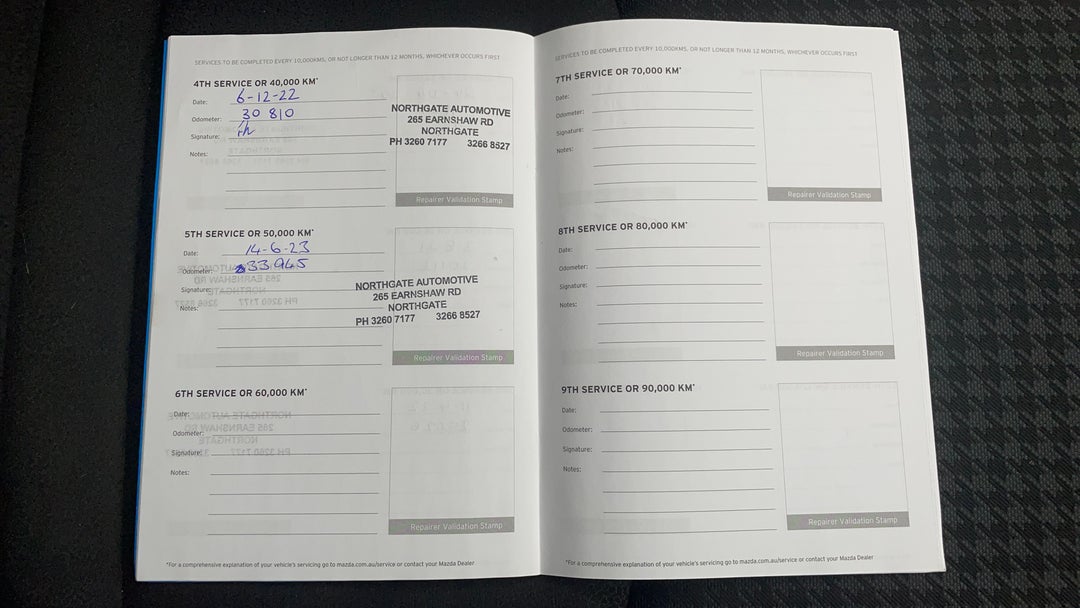 SERVICES TO BE COMPLETED EVERY 10,000KMS, OR NOT LONGER THAN 12 MONTHS, WHICHEVER OCCURS FIRST
4TH SERVICE OR 40,000 KM*
Date: 6-12-22
Odometer: 30 810
Signature:
Notes:
NORTHGATE AUTOMOTIVE
265 EARNSHAW RD
NORTHGATE
PH 3260 7177 3266 8527
Repairer Validation Stamp
5TH SERVICE OR 50,000 KM*
Date: 14-6-23
Odometer: 33945
Signature:
Notes:
NORTHGATE AUTOMOTIVE
265 EARNSHAW RD
NORTHGATE
PH 3260 7177 3266 8527
Repairer Validation Stamp
6TH SERVICE OR 60,000 KM*
Date:
Odometer:
Signature:
Notes:
Repairer Validation Stamp
*For a comprehensive explanation of your vehicle's servicing go to mazda.com.au/service or contact your Mazda Dealer
SERVICES TO BE COMPLETED EVERY 10,000KMS, OR NOT LONGER THAN 12 MONTHS, WHICHEVER OCCURS FIRST
7TH SERVICE OR 70,000 KM*
Date:
Odometer:
Signature:
Notes:
Repairer Validation Stamp
8TH SERVICE OR 80,000 KM*
Date:
Odometer:
Signature:
Notes:
Repairer Validation Stamp
9TH SERVICE OR 90,000 KM*
Date:
Odometer:
Signature:
Notes:
Repairer Validation Stamp
*For a comprehensive explanation of your vehicle's servicing go to mazda.com.au/service or contact your Mazda Dealer